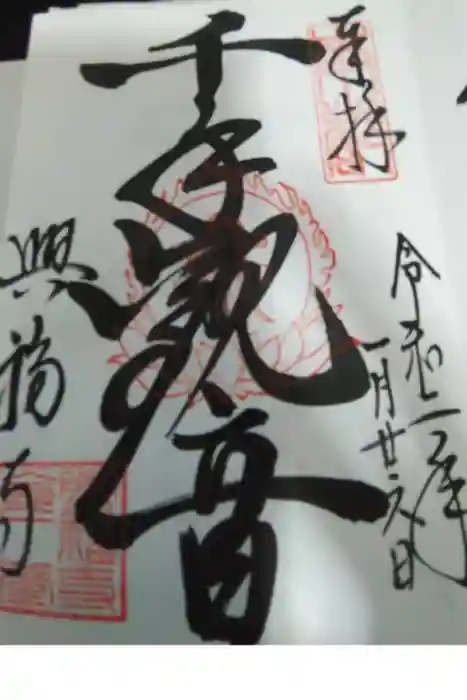 奉拝
令和二年
一月廿六日
千手観音
興福寺